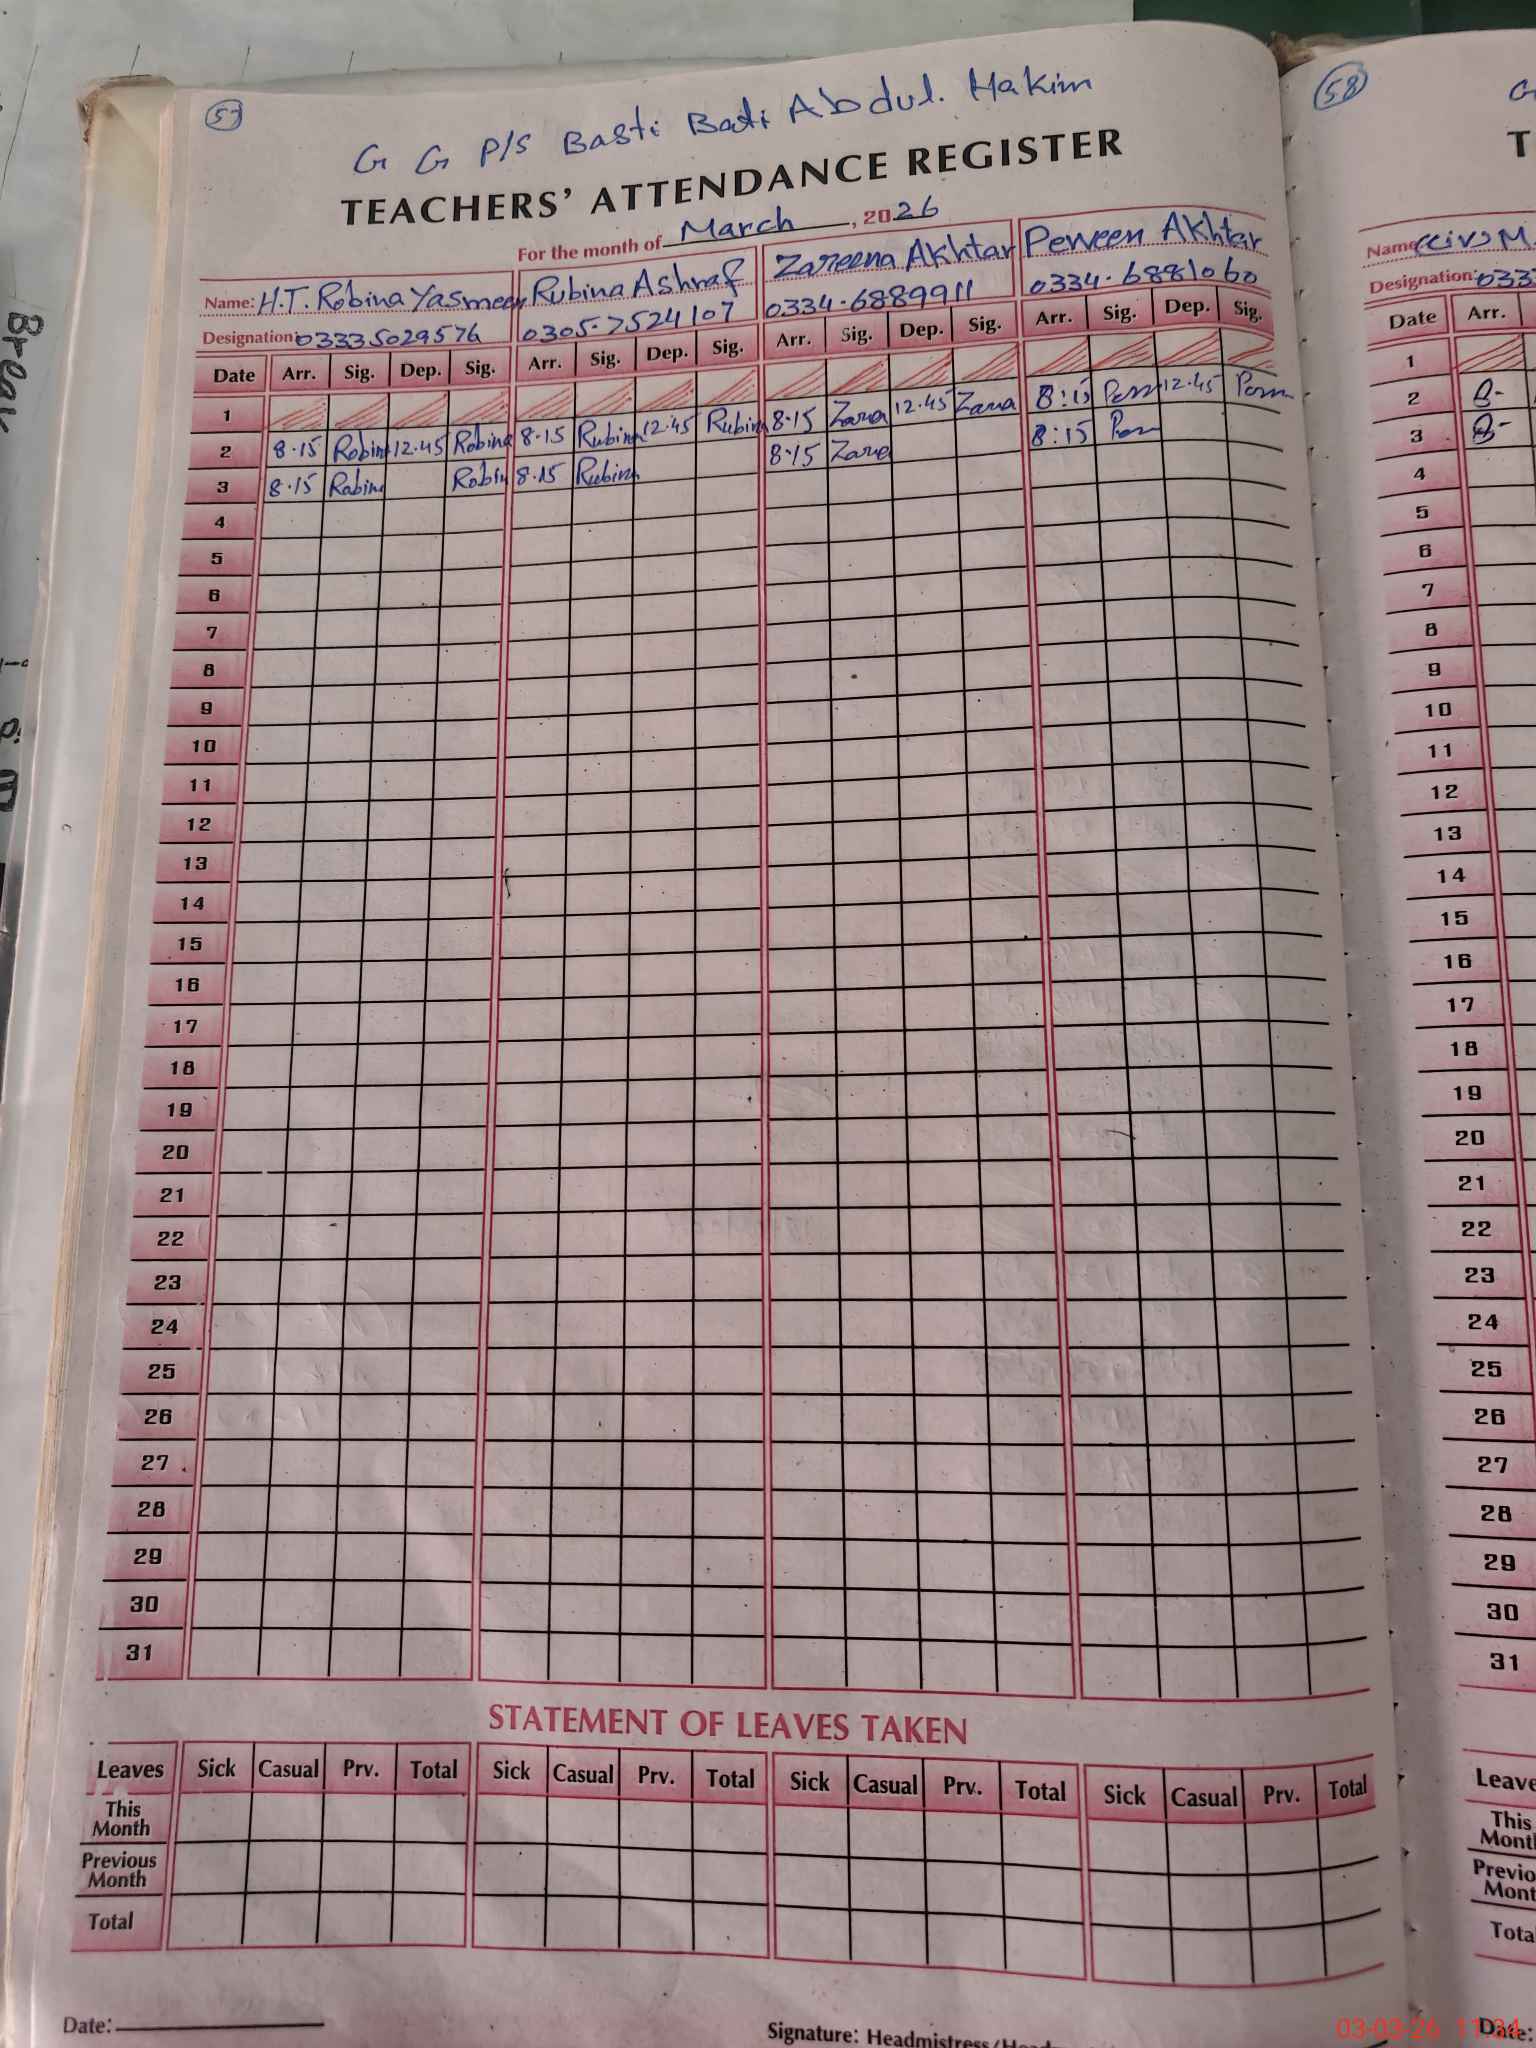 57
G G P/S Basti Badi Abdul. Hakim
TEACHERS' ATTENDANCE REGISTER
For the month of March, 2026
Name: H.T. Robina Yasmeen Rubina Ashraf Zareena Akhtar Perveen Akhtar
Designation: 03335029576 0305-7524107 0334-6889911 0334-6881060
Date Arr. Sig. Dep. Sig. Arr. Sig. Dep. Sig. Arr. Sig. Dep. Sig. Arr. Sig. Dep. Sig.
1
2 8.15 Robina 12.45 Robina 8.15 Rubina 12.45 Rubina 8.15 Zara 12.45 Zara 8:15 12.45
3 8.15 Robina Robin 8.15 Rubina 8.15 Zare 8:15
4
5
6
7
8
9
10
11
12
13
14
15
16
17
18
19
20
21
22
23
24
25
26
27
28
29
30
31
STATEMENT OF LEAVES TAKEN
Leaves Sick Casual Prv. Total Sick Casual Prv. Total Sick Casual Prv. Total Sick Casual Prv. Total
This Month
Previous Month
Total
Date:
Signature: Headmistress/
58
G
T
Name: M.
Designation: 033
Date Arr.
1
2 8-
3 8-
4
5
6
7
8
9
10
11
12
13
14
15
16
17
18
19
20
21
22
23
24
25
26
27
28
29
30
31
Leave
This
Month
Previo
Mont
Tota
Date:
03-03-26 11:34
Break